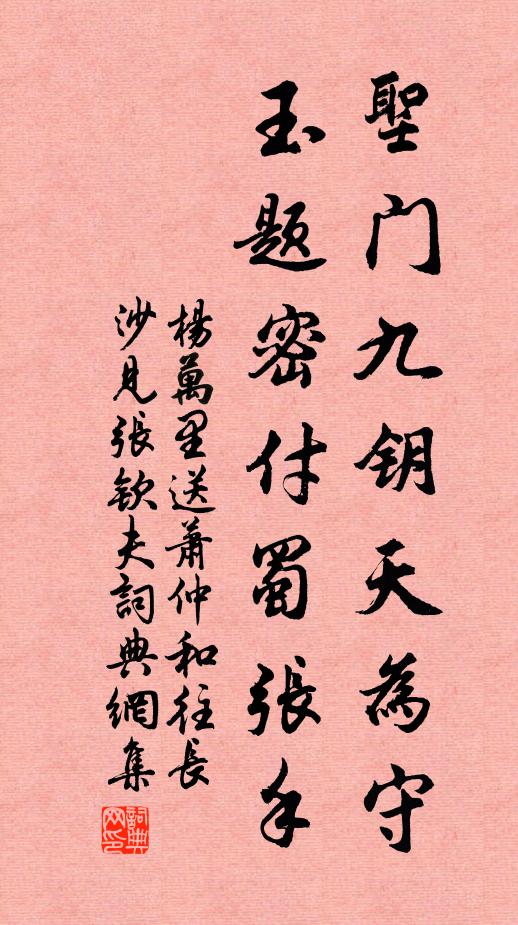 聖门九钥天為守
玉题密付蜀張手
楊萬里送蕭仲和往長
沙見張欽夫詞典網集
詞典
网印